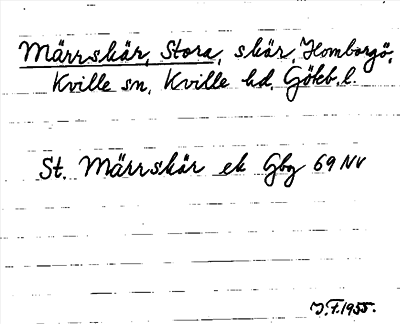 Märrskär, Stora, skär, Homborgö,
Kville sn, Kville hd, Göteb. l.
St. Märrskär ek Gbg 69 NV
J.F. 1955.